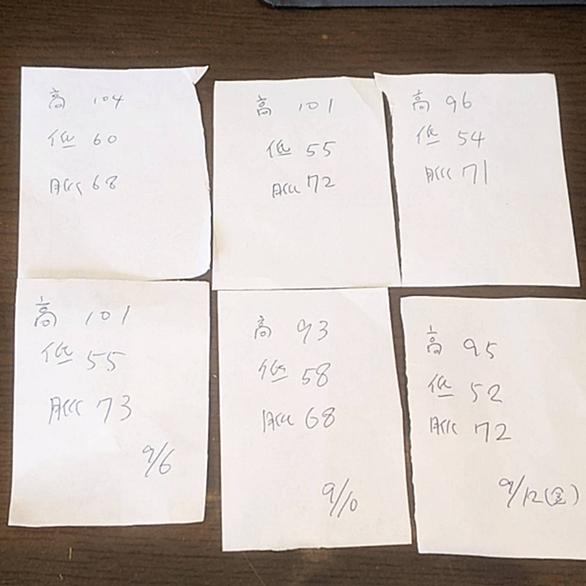 高 104
低 60
脈 68
高 101
低 55
脈 72
高 96
低 54
脈 71
高 101
低 55
脈 73
9/6
高 93
低 58
脈 68
9/10
高 95
低 52
脈 72
9/12(金)